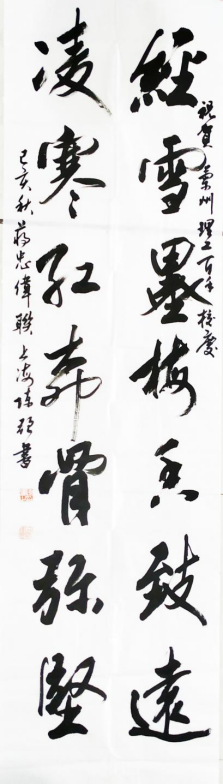 祝賀蘭州理工百年校慶
經雪墨梅香致遠
凌寒紅卉骨弥堅
己亥秋蔣忠偉聯上海陳碩書